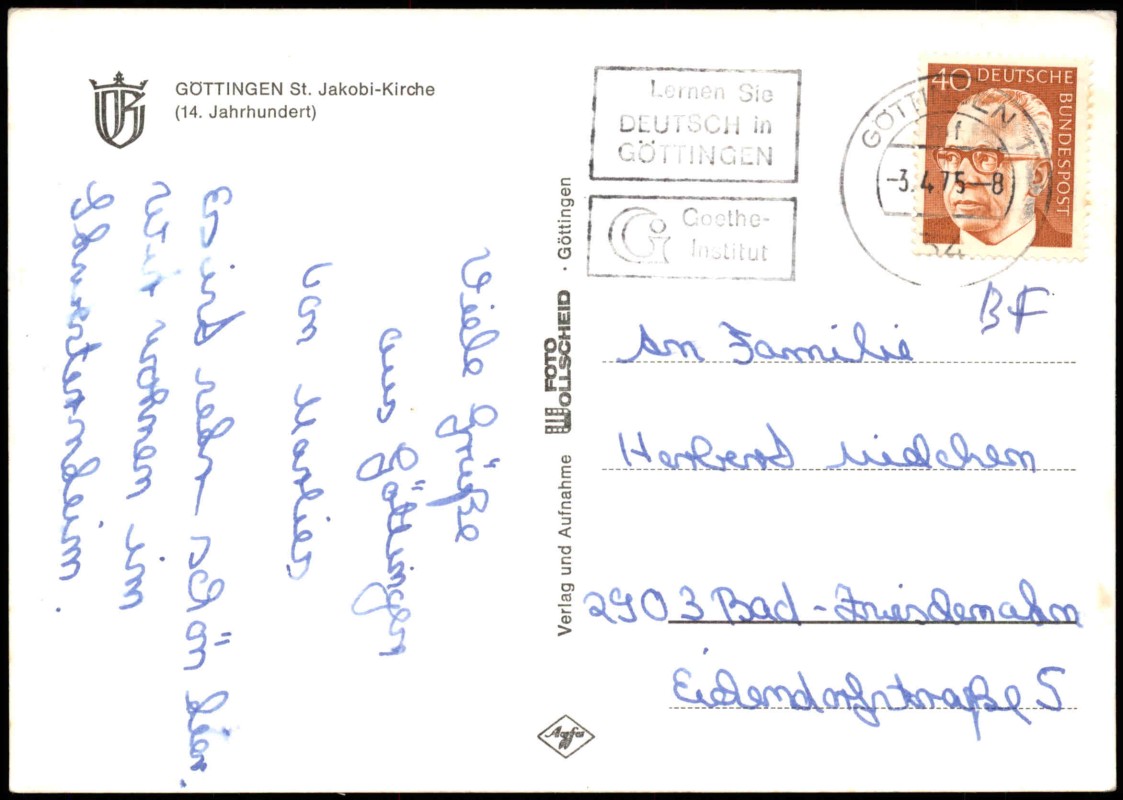 GÖTTINGEN St. Jakobi-Kirche
(14. Jahrhundert)
Lernen Sie
DEUTSCH in
GÖTTINGEN
Goethe-
Institut
GÖTTINGEN 1
f
-3.4.75--8
34
40 DEUTSCHE
BUNDESPOST
BF
Viele Grüße
aus Göttingen
von Marlies
Es ist sehr schön hier.
Wir wohnen im
Schwesternheim.
Verlag und Aufnahme FOTO WOLLSCHEID · Göttingen
An Familie
Herbert
2903 Bad-Zwischenahn
Eichendorfstraße 5
Agfa